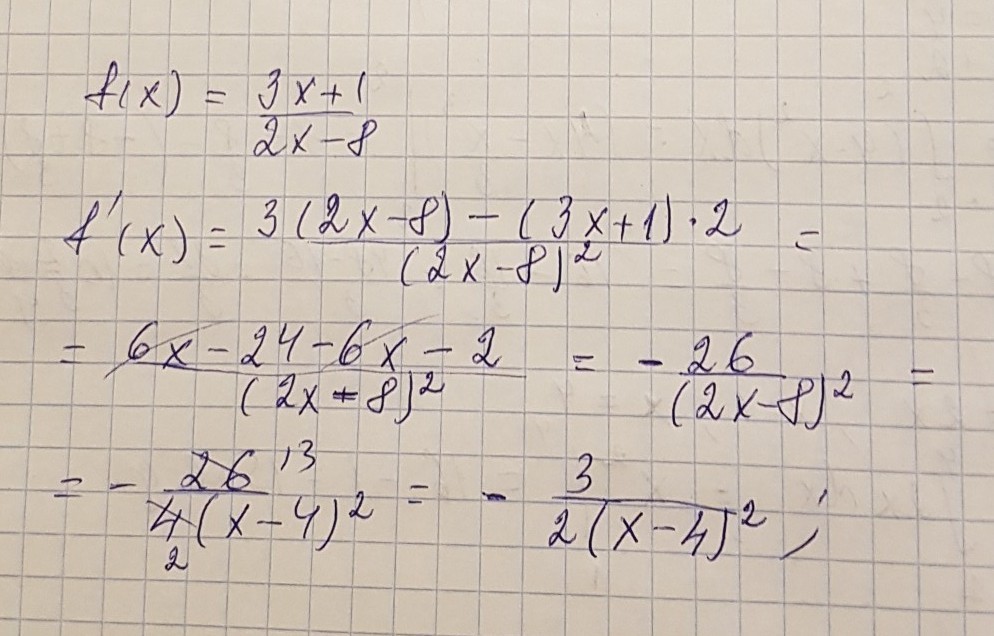 f(x) = (3x+1)/(2x-8)
f'(x) = (3(2x-8)-(3x+1)·2)/(2x-8)² =
= (6x-24-6x-2)/(2x-8)² = -26/(2x-8)² =
= -26 13/4 2(x-4)² = -3/2(x-4)²;